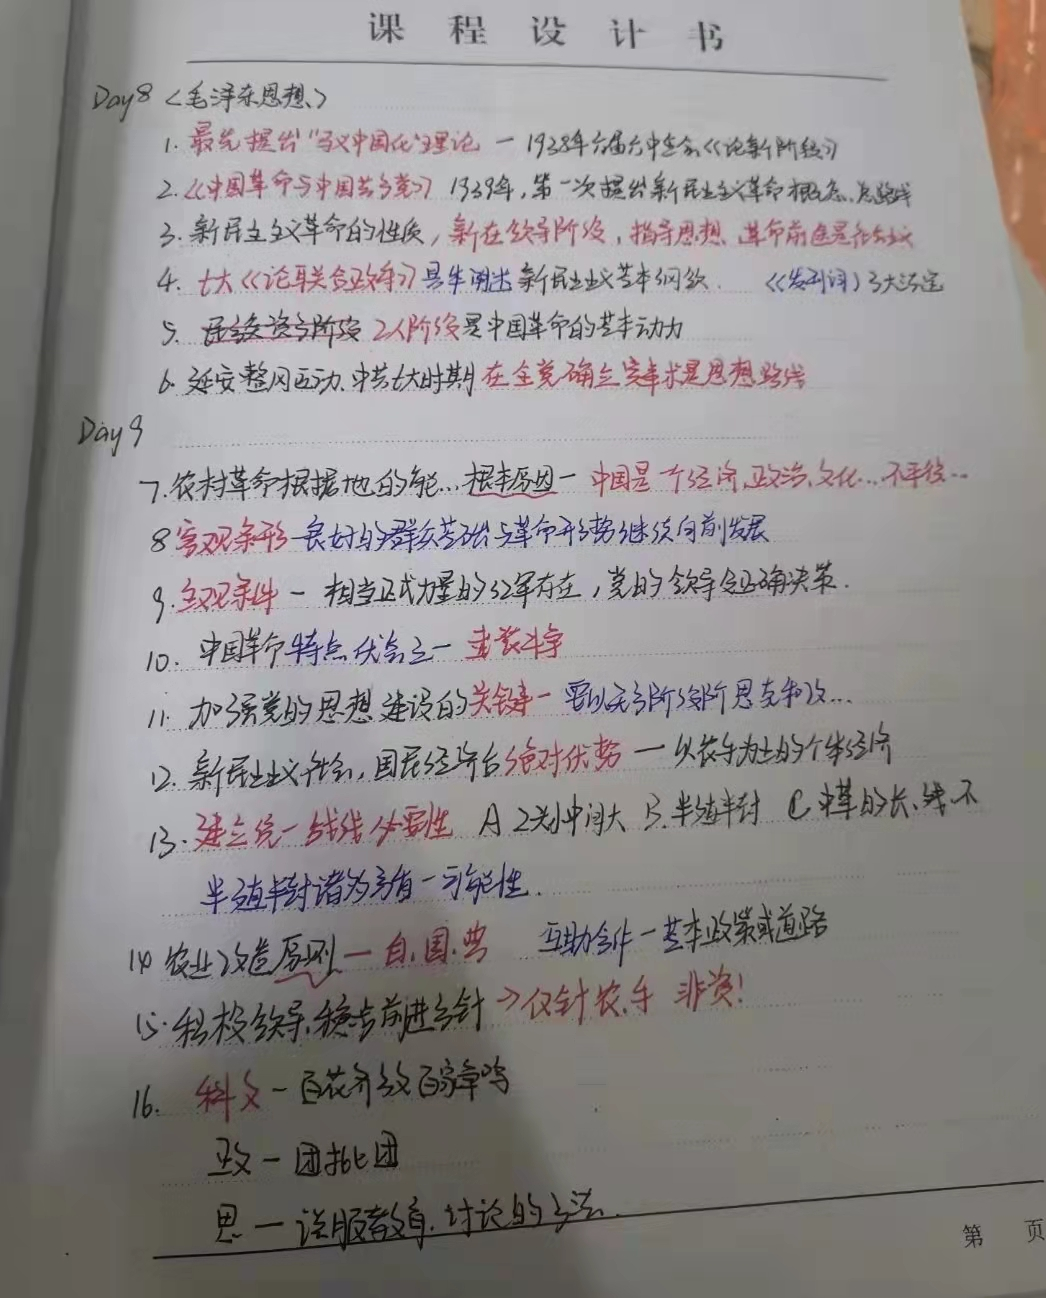 课程设计书
Day8 <毛泽东思想>
1. 最先提出"马义中国化"理论 — 1938年六届六中全会《论新阶段》
2.《中国革命与中国共产党》 1939年,第一次提出新民主主义革命概念、总路线
3. 新民主主义革命的性质,新在领导阶级,指导思想、革命前途是社会主义
4. 七大《论联合政府》具体阐述新民主主义基本纲领. 《发刊词》3大法宝
5. 2人阶级是中国革命的基本动力
6. 延安整风运动、中共七大时期在全党确立实事求是思想路线
Day9
7. 农村革命根据地的能...根本原因 — 中国是一个经济、政治、文化...不平衡...
8 客观条形—良好的群众基础与革命形势继续向前发展
9. 主观条件 — 相当正式力量的红军存在,党的领导正确决策.
10. 中国革命特点优点之一 武装斗争
11. 加强党的思想建设的关键— 要以无产阶级阶思克和改...
12. 新民主主义社会,国民经济占绝对优势 — 以农手为主的个体经济
13. 建立统一战线必要性 A 2头小中间大 B.半殖半封 C 中革的长、残、不
半殖半封诸为产有一可能性.
14 农业改造原则 — 自.国.典 互助合作 — 基本政策或道路
15. 积极领导、稳步前进方针 →仅针农、手 非资!
16. 科文 — 百花齐放百家争鸣
政 — 团批团
思 — 说服教育.讨论的方法.
第 页